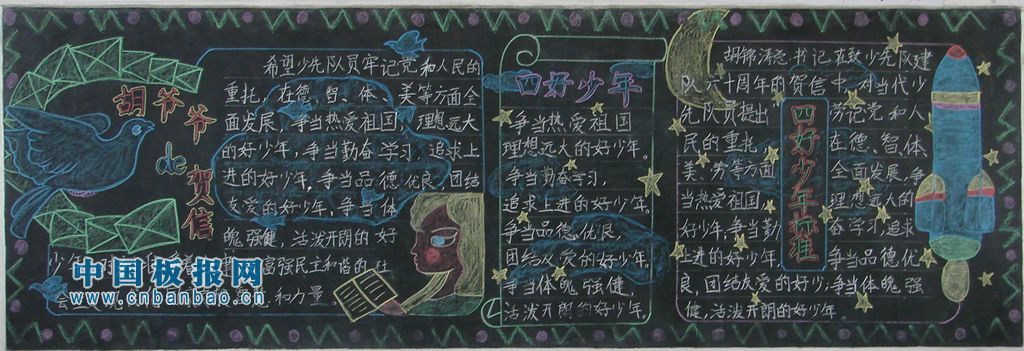 胡爷爷de贺信
希望少先队员牢记党和人民的
重托，在德、智、体、美等方面全
面发展，争当热爱祖国，理想远大
的好少年，争当勤奋学习，追求上
进的好少年，争当品德优良，团结
友爱的好少年，争当体
魄强健，活泼开朗的好
富强民主和谐的社
和力量
中国板报网
www.cnbanbao.cn
四好少年
争当热爱祖国
理想远大的好少年。
争当勤奋学习，
追求上进的好少年。
争当品德优良，
团结友爱的好少年。
争当体魄强健，
活泼开朗的好少年。
四好少年标准
胡锦涛总书记在致少先队建
队六十周年的贺信中，对当代少
先队员提出 劳记党和人
民的重托， 在德、智、体
美、劳等方面 全面发展，争
当热爱祖国， 理想远大的
好少年，争当勤 奋学习，追求
上进的好少年， 争当品德优
良，团结友爱的好少年，争当体魄强
健，活泼开朗的好少年。